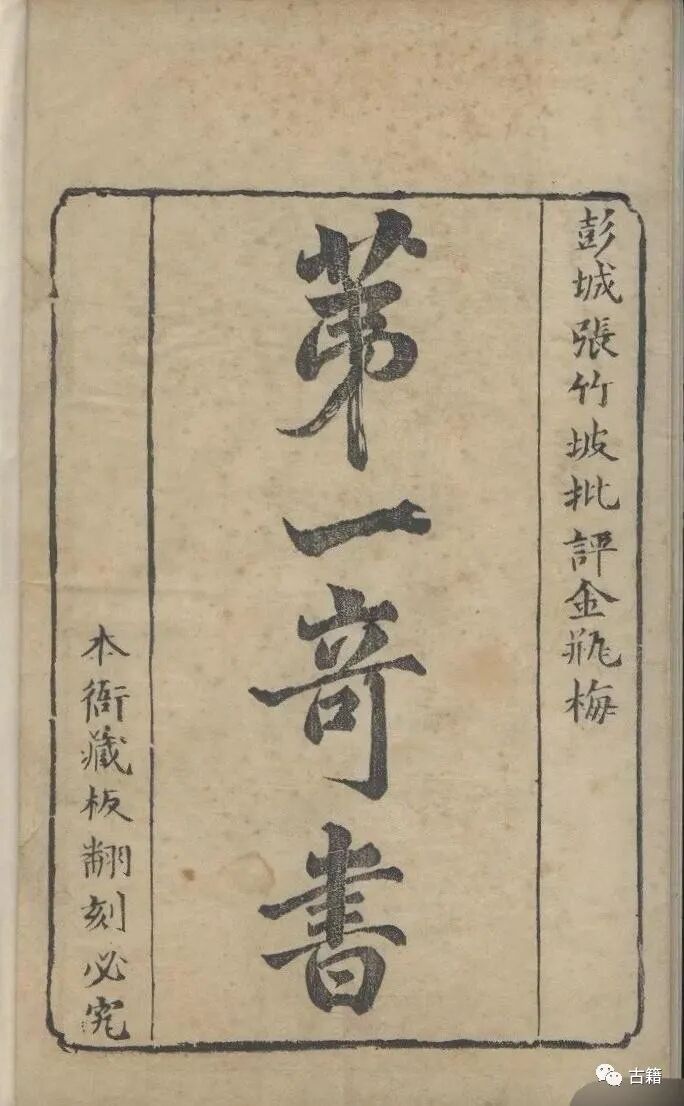 彭城張竹坡批評金瓶梅
第一奇書
本衙藏板翻刻必究
古籍